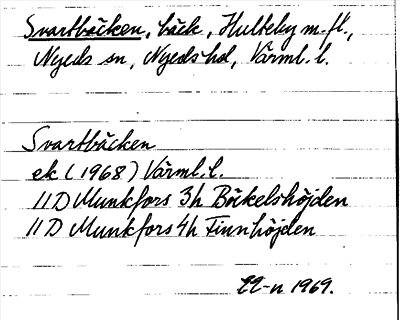 Svartbäcken, bäck, Hulteby m.fl.,
Nyeds sn, Nyeds hd, Värml. l.
Svartbäcken
ek (1968) Värml. l.
11D Munkfors 3h Bökelshöjden
11D Munkfors 4h Finnhöjden
1969.